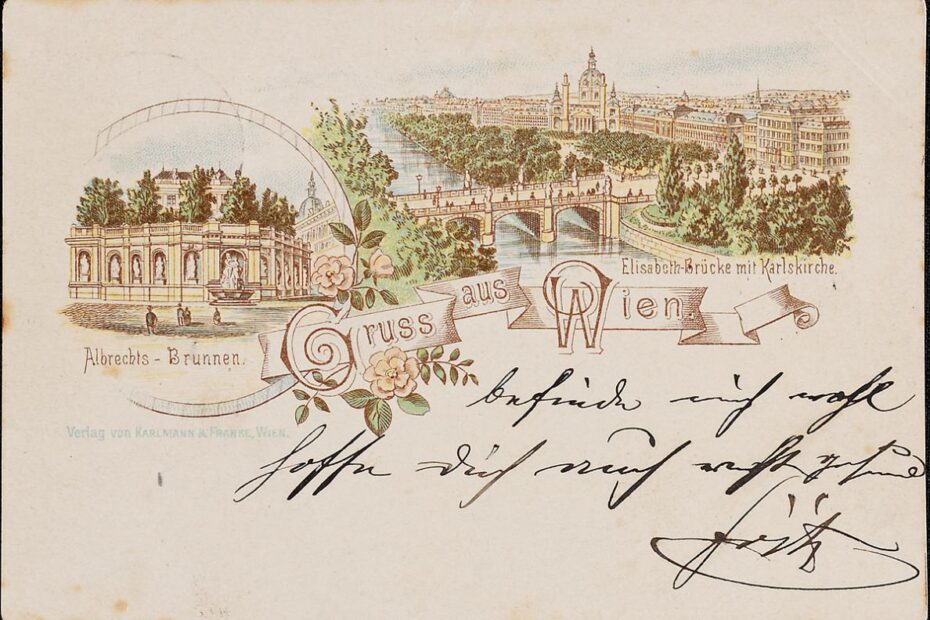 Elisabeth-Brücke mit Karlskirche.
Gruss aus Wien.
Albrechts-Brunnen.
Verlag von KARLMANN & FRANKE, WIEN.
befinde mich wohl
hoffe Dich auch recht gesund